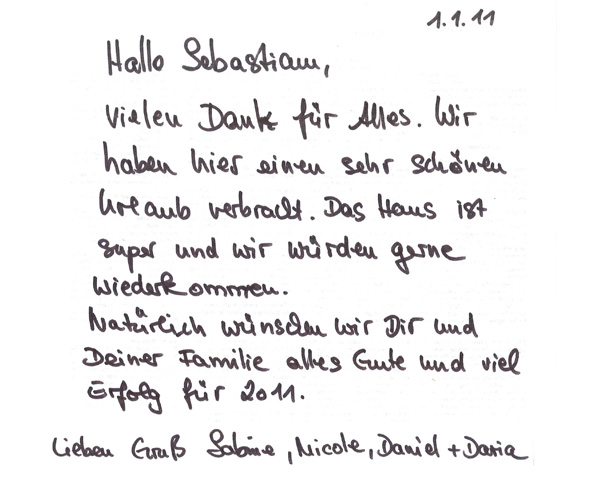 1.1.11
Hallo Sebastian,
vielen Dank für Alles. Wir
haben hier einen sehr schönen
Urlaub verbracht. Das Haus ist
super und wir würden gerne
wiederkommen.
Natürlich wünschen wir Dir und
Deiner Familie alles Gute und viel
Erfolg für 2011.
Lieben Gruß Sabine, Nicole, Daniel + Daria